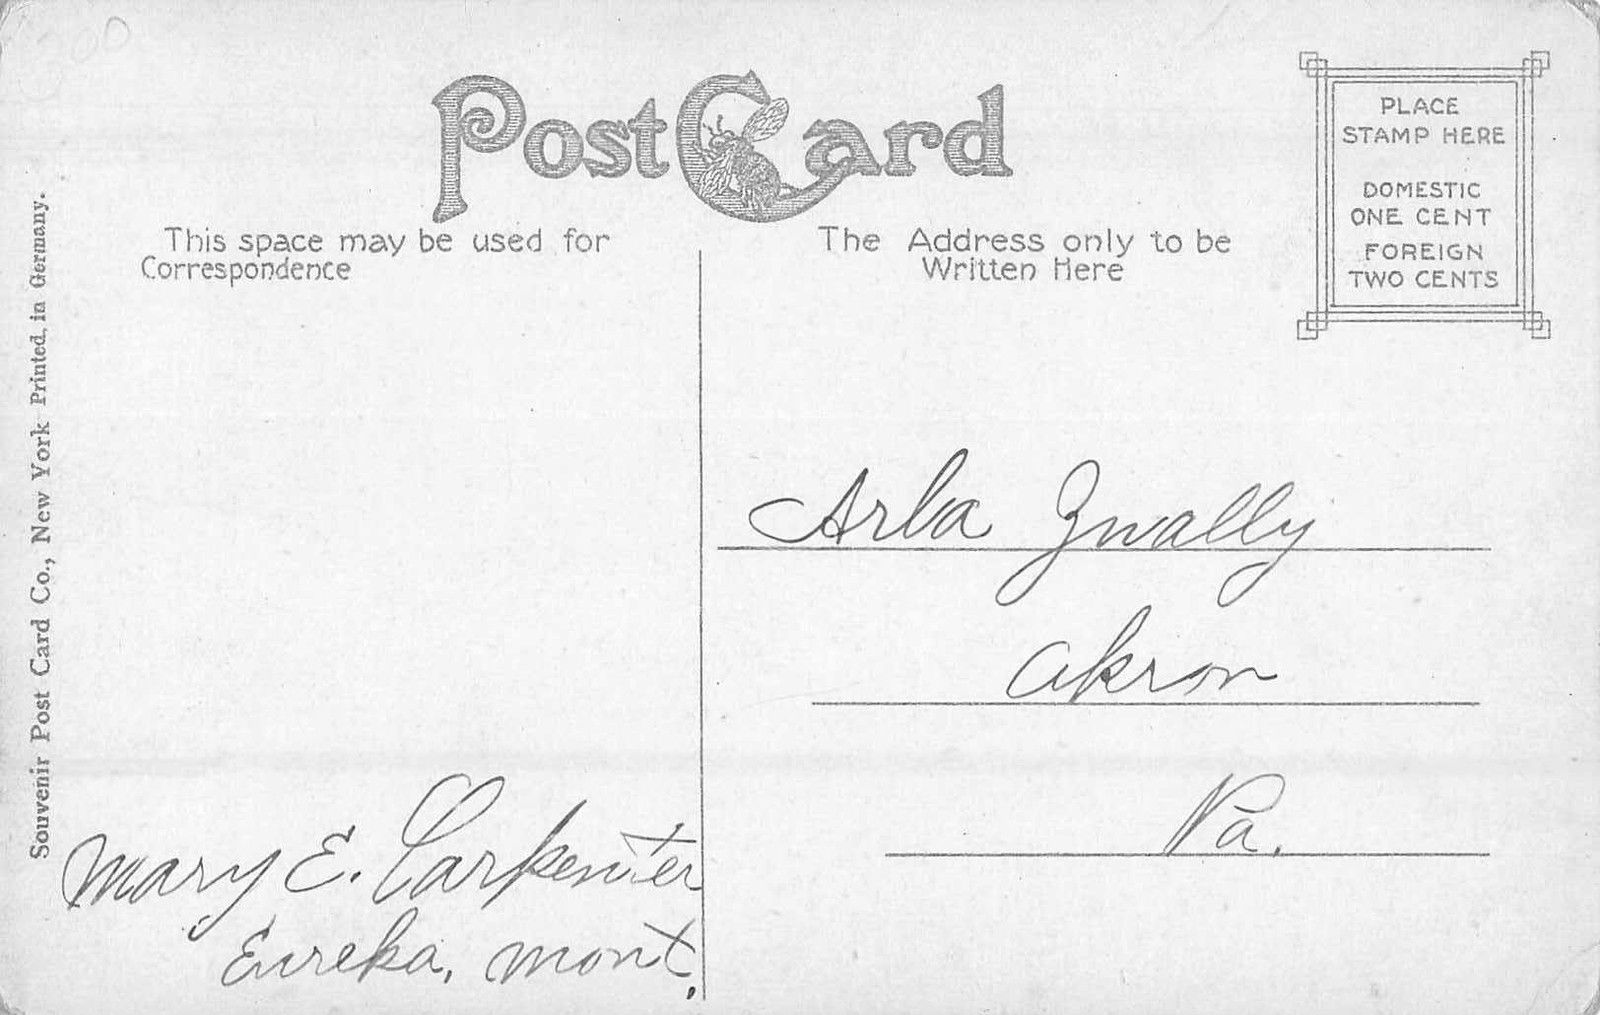 Post Card
PLACE
STAMP HERE
DOMESTIC
ONE CENT
FOREIGN
TWO CENTS
This space may be used for
Correspondence
The Address only to be
Written Here
Souvenir Post Card Co., New York Printed in Germany.
Arba Zwally
Akron
Pa.
Mary E. Carpenter
Eureka, Mont.